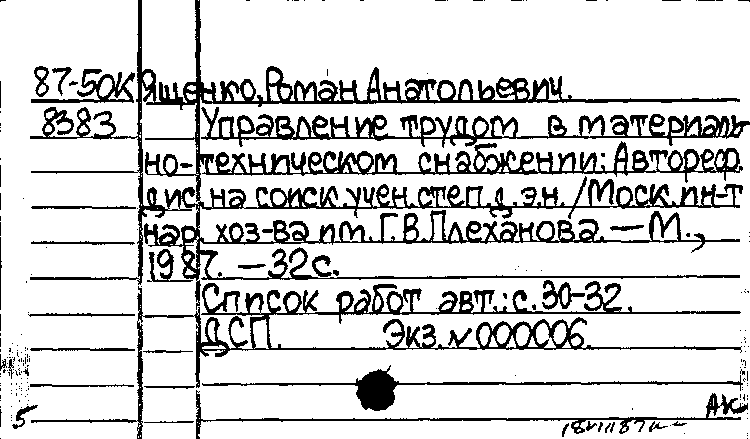 87-50К Ященко, Роман Анатольевич.
8383 Управление трудом в материаль
но-техническом снабжении: Автореф.
дис. на соиск. учен. степ. д. э. н. / Моск. ин-т
нар. хоз-ва им. Г. В. Плеханова. — М.,
1987. — 32 с.
Список работ авт.: с. 30-32.
ДСП. Экз. N 000006.
5 АК